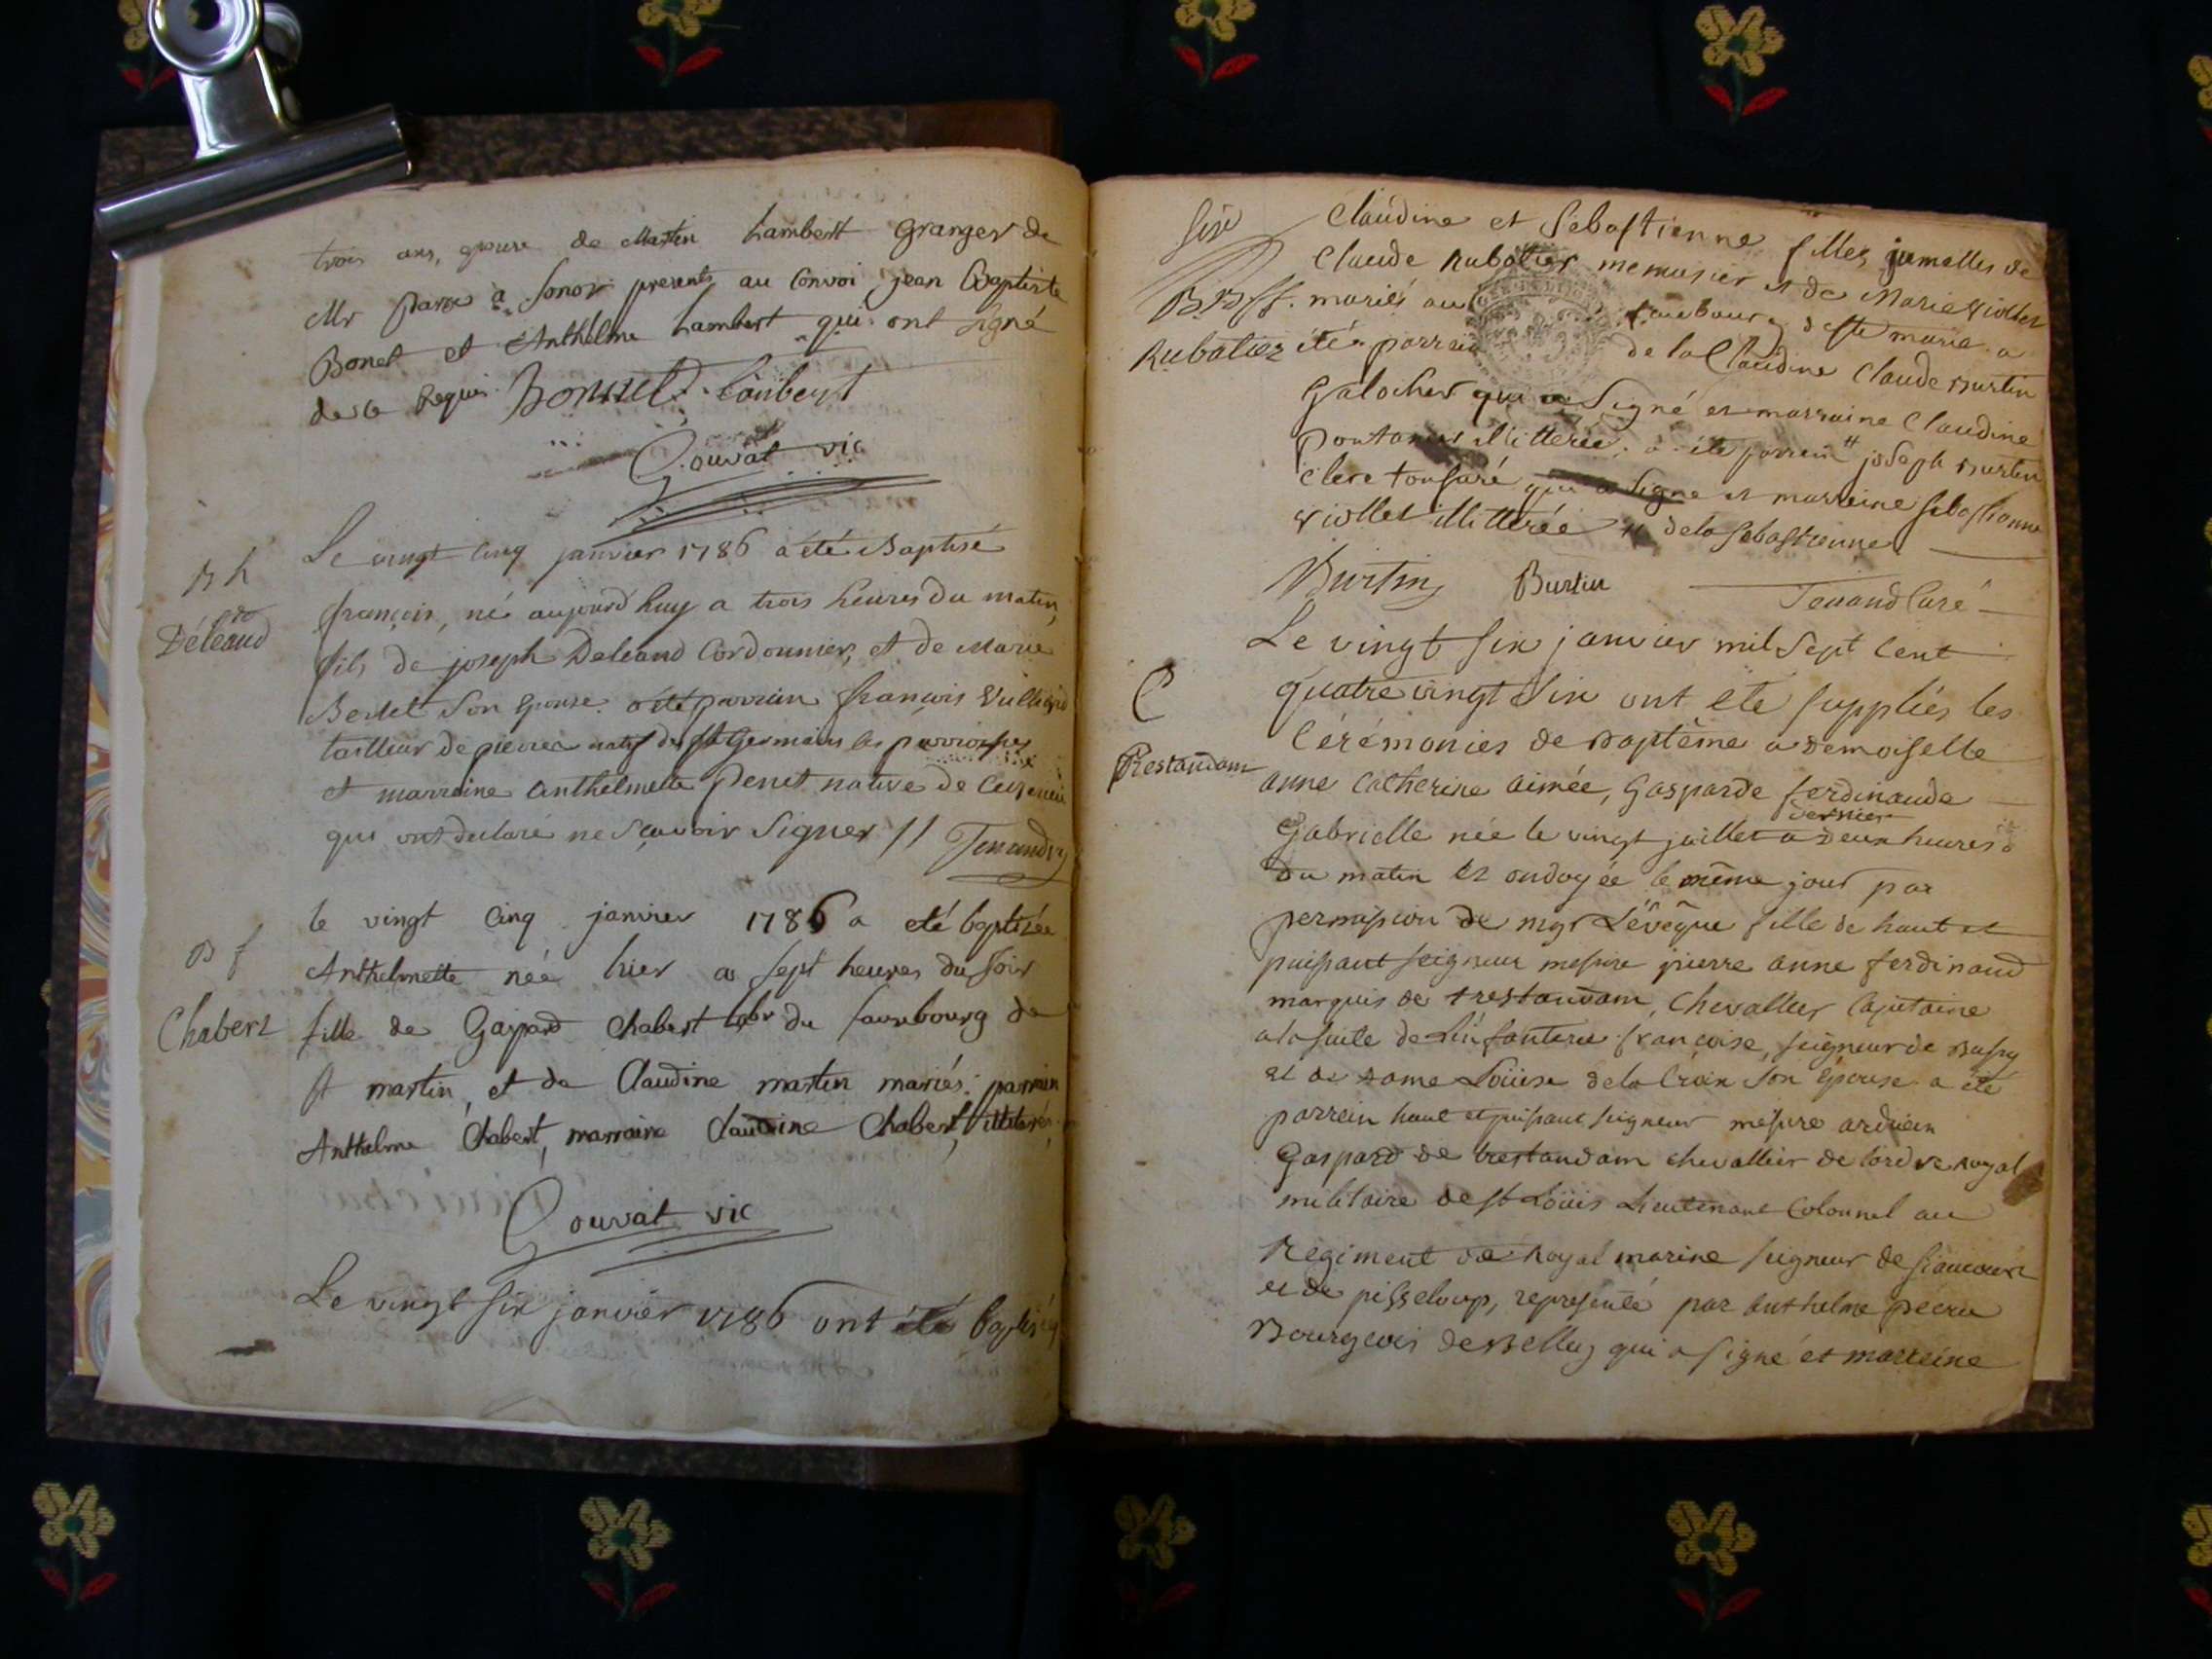 trois ans, epouse de Martin Lambert Granger de
Mr Parra a Sonor presents au Convoi jean Baptiste
Bonet et Anthelme Lambert qui ont signé
de ce Requis. Bonnet. Lambert
Gouvat vic
B h
Déléand
Le vingt cinq janvier 1786 a été Baptisé
françois, né aujourd'huy a trois heures du matin,
fils de joseph Deleand Cordonnier, et de Marie
son Epouse. a été parrain françois
tailleur de pierres natif de St Germain les parroisses
et marraine anthelmette Penet native de
qui ont declaré ne sçavoir signer // Tenand
B f
Chabert
le vingt cinq janvier 1786 a eté baptisée
Anthelmette née hier a sept heures du soir
fille de Gaspard Chabert labr du fauxbourg de
st martin, et de Claudine martin mariés: parrain
Anthelme Chabert, marraine Claudine Chabert, illiterés.
Gouvat vic
Le vingt six janvier 1786 ont été baptisés
six
B.B ff.
Rubatier
Claudine et Sebastienne filles jumelles de
Claude Rubatier menusier et de Marie Viollet
mariés au fauxbourg de ste marie. a
été parrain de la Claudine Claude Burtin
Galocher qui a signé et marraine Claudine
illitterée; a été parrein # joseph Burtin
Clerc tonsuré qui a signé et marreine sebastienne
Viollet illitterée # de la sebastienne
Burtin Burtin Tenand Curé
C
Trestaudam
Le vingt six janvier mil sept cent
quatre vingt six ont été suppliés les
Cérémonies de Baptême a demoiselle
anne Catherine aimée, Gasparde ferdinande
dernier
Gabrielle née le vingt juillet a deux heures
du matin et ondoyée le même jour par
permission de mgr L'évêque fille de haut et
puissant seigneur messire pierre anne ferdinand
marquis de trestaudam, Chevallier Capitaine
a la suite de L'infanterie françoise, seigneur de Bussy
et de dame Loüise de la Croix son épouse a été
parrein haut et puissant seigneur messire arduein
Gaspard de trestaudam chevallier de l'ordre royal
militaire de st Loüis Lieutenant Colonnel au
Regiment de Royal marine seigneur de
et de pisseloup, représenté par anthelme
Bourgeois de Belley qui a signé et marreine